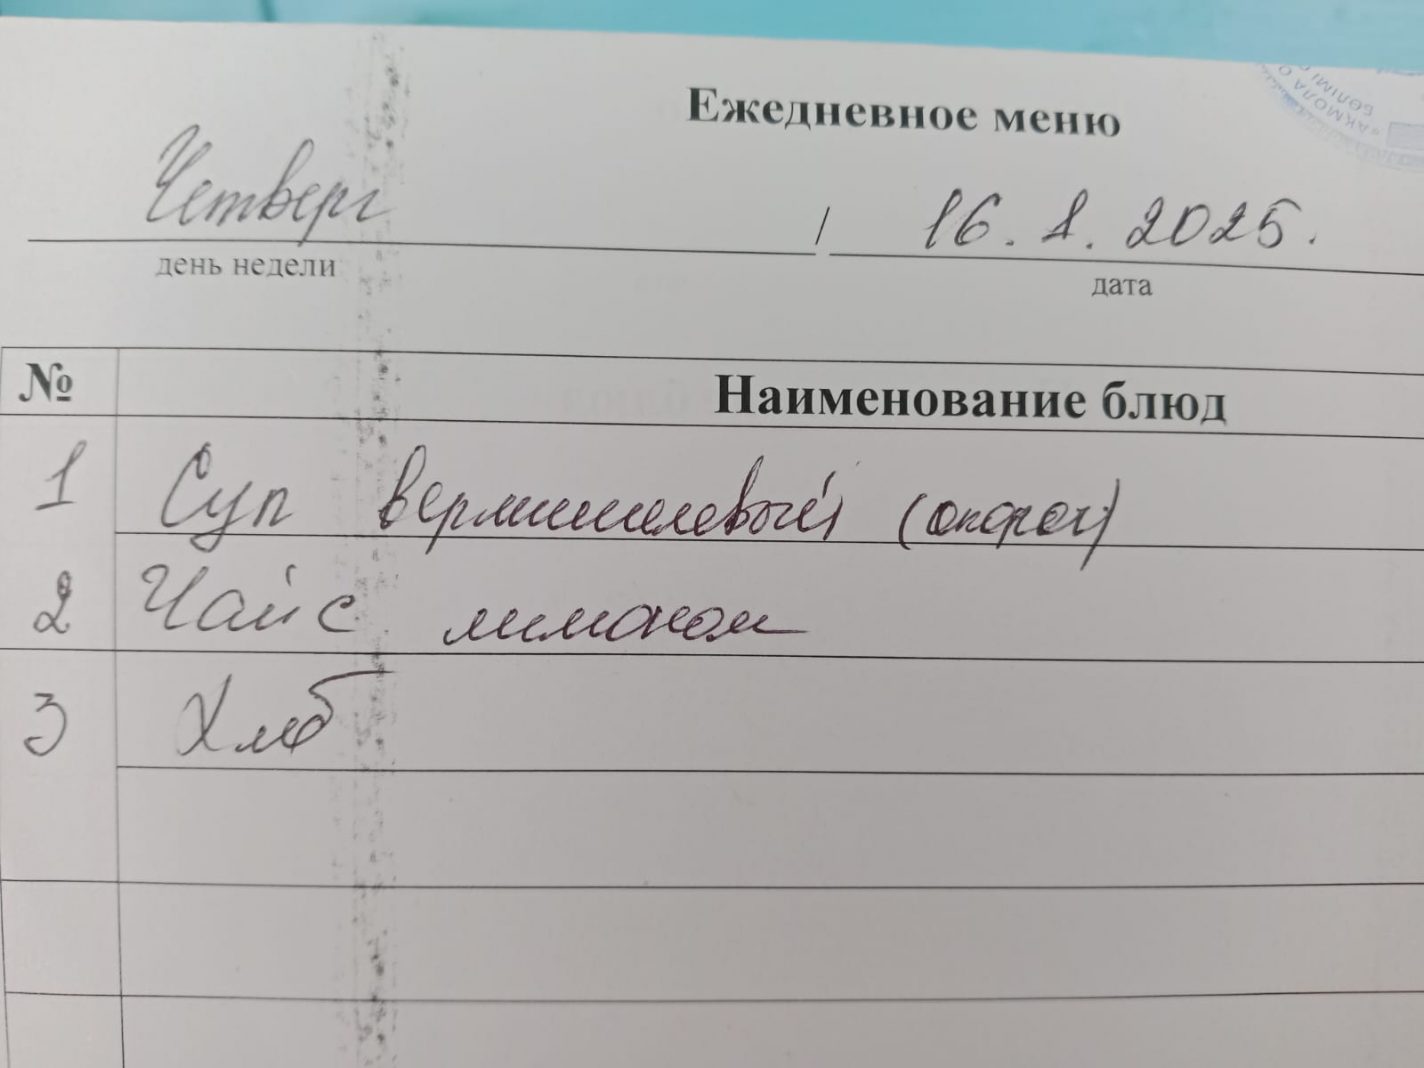 Ежедневное меню
Четверг / 16.1.2025.
день недели дата
№ Наименование блюд
1 Суп вермишелевый (окороч)
2 Чай с лимоном
3 Хлеб
АКМОЛА О
БӨЛІМІ